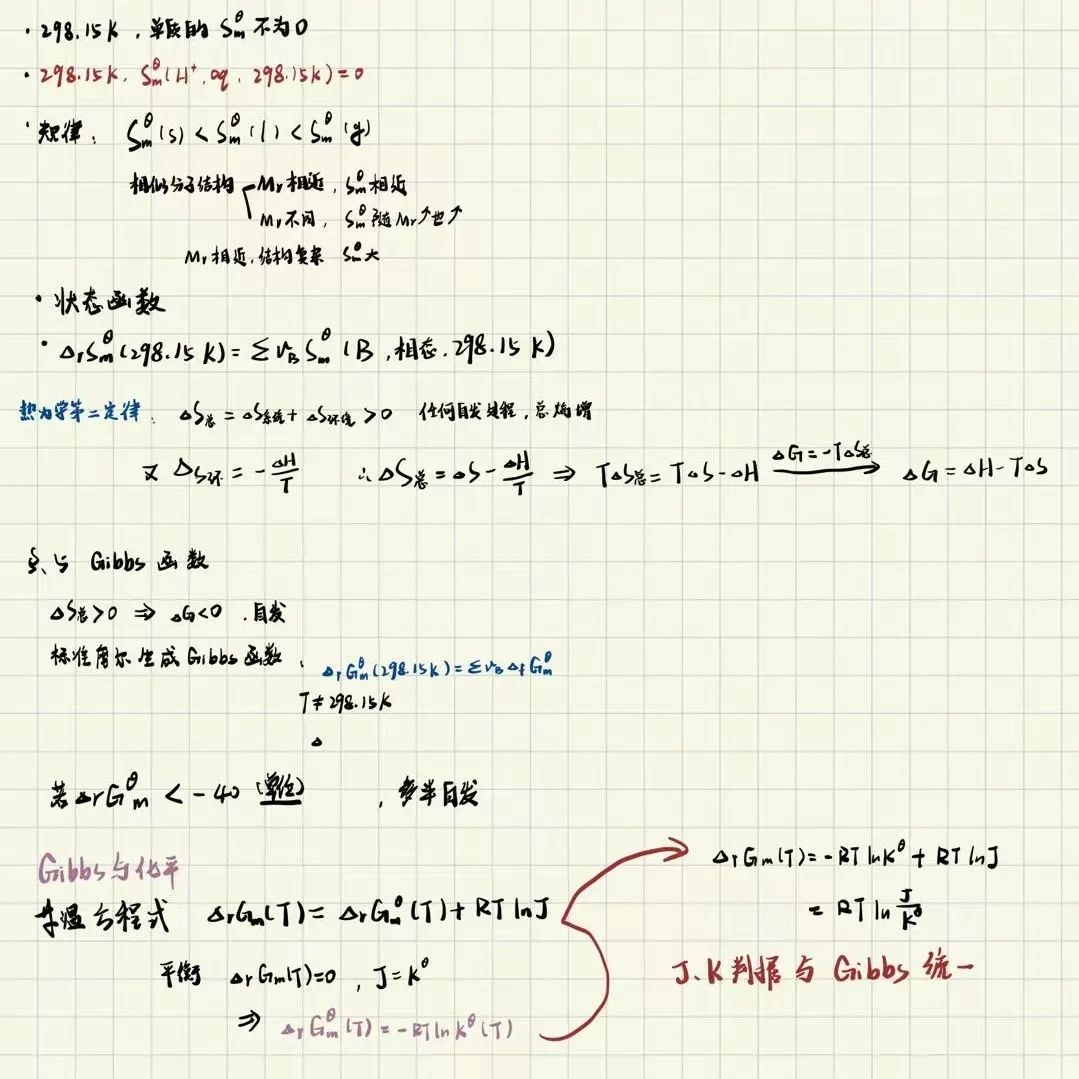 · 298.15K，单质的 Sₘ^θ 不为0
· 298.15K，Sₘ^θ(H⁺, aq, 298.15K)=0
· 规律： Sₘ^θ(s) < Sₘ^θ(l) < Sₘ^θ(g)
相似分子结构 Mr相近，Sₘ^θ相近
Mr不同，Sₘ^θ随Mr↑也↑
Mr相近，结构复杂 Sₘ^θ大
· 状态函数
· ΔrSₘ^θ(298.15 K) = Σ νB Sₘ^θ (B，相态，298.15 K)
热力学第二定律： ΔS总 = ΔS系统 + ΔS环境 > 0 任何自发过程，总熵增
又 ΔS环 = -ΔH/T ∴ ΔS总 = ΔS - ΔH/T ⇒ TΔS总 = TΔS - ΔH ΔG=-TΔS总 → ΔG = ΔH - TΔS
与 Gibbs 函数
ΔS总>0 ⇒ ΔG<0，自发
标准摩尔生成Gibbs函数， ΔrGₘ^θ(298.15K) = Σ νB ΔfGₘ^θ
T≠298.15K
Δ
若 ΔrGₘ^θ < -40 (单位)，多半自发
Gibbs与化平
等温方程式 ΔrGₘ(T) = ΔrGₘ^θ(T) + RT lnJ
平衡 ΔrGₘ(T)=0，J=K^θ
⇒ ΔrGₘ^θ(T) = -RT lnK^θ(T)
ΔrGₘ(T) = -RT lnK^θ + RT lnJ
= RT ln J/K^θ
J、K判据与 Gibbs 统一